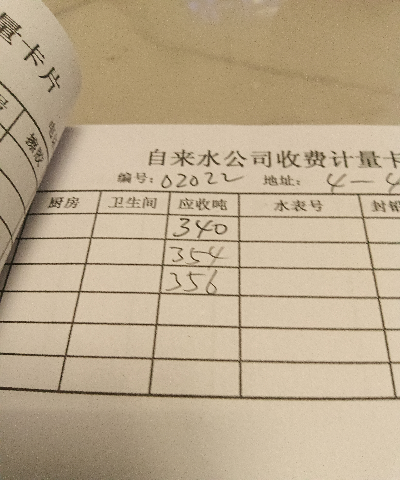 量卡片
自来水公司收费计量卡
编号: 02022 地址: 4-4
厨房 卫生间 应收吨 水表号 封铅
340
354
356